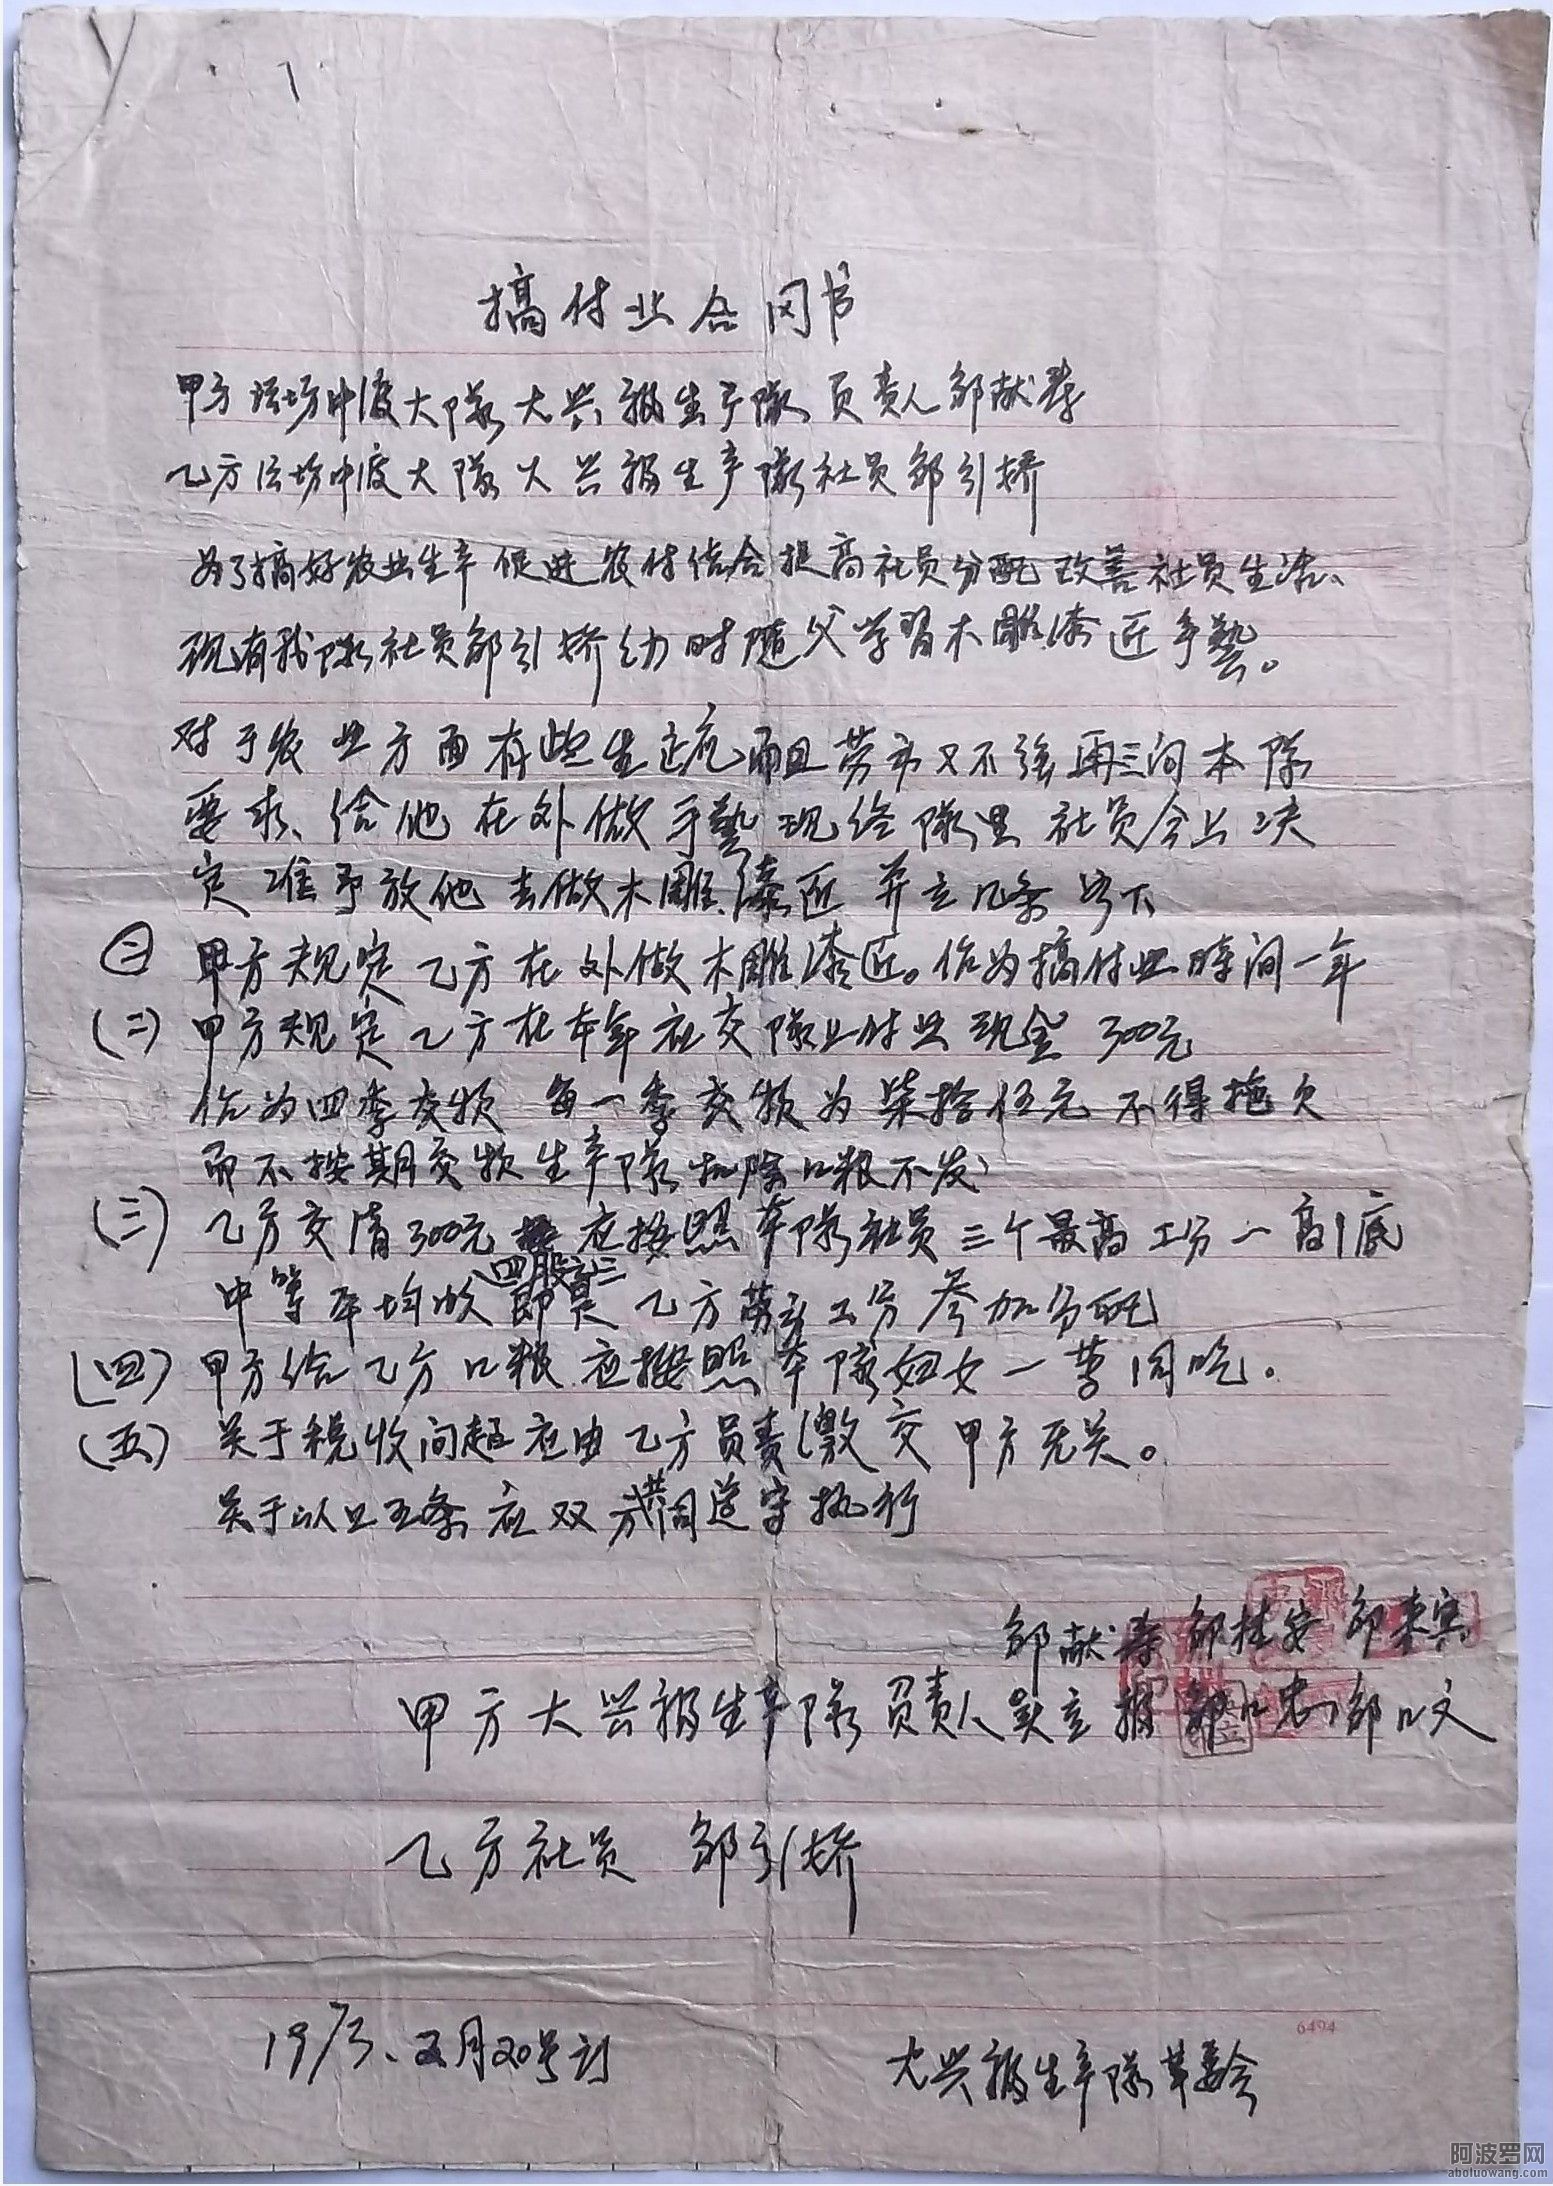 搞付业合同书
甲方法坊中渡大队大兴报生产队负责人邹献寿
乙方法坊中渡大队大兴报生产队社员邹引娇
为了搞好农业生产促进农付结合提高社员分配改善社员生活、
现有我队社员邹引娇幼时随父学习木雕漆匠手艺。
对于农业方面有些生疏而且劳力又不强再三问本队
要求、给他在外做手艺现经队里社员会上决
定准予放他去做木雕漆匠并立几条如下
(一) 甲方规定乙方在外做木雕漆匠。作为搞付业时间一年
(二) 甲方规定乙方在本年社交队上付业现金300元
作为四季交款每一季交款为柒拾伍元不得拖欠
而不按期交款生产队扣除口粮不发
(三) 乙方交清300元应按照本队社员三个最高工分一高1底
中等平均收四股之三即是乙方劳动工分参加分配
(四) 甲方给乙方口粮应按照本队妇女一等同吃。
(五) 关于税收问题应由乙方员责缴交甲方无关。
关于以上五条应双方共同遵守执行
邹献寿 邹桂安 邹来宾
甲方大兴报生产队负责人吴立报 邹口忠 邹口文
乙方社员 邹引娇
1973、2月20号订
大兴报生产队革委会
6494
阿波罗网
aboluowang.com